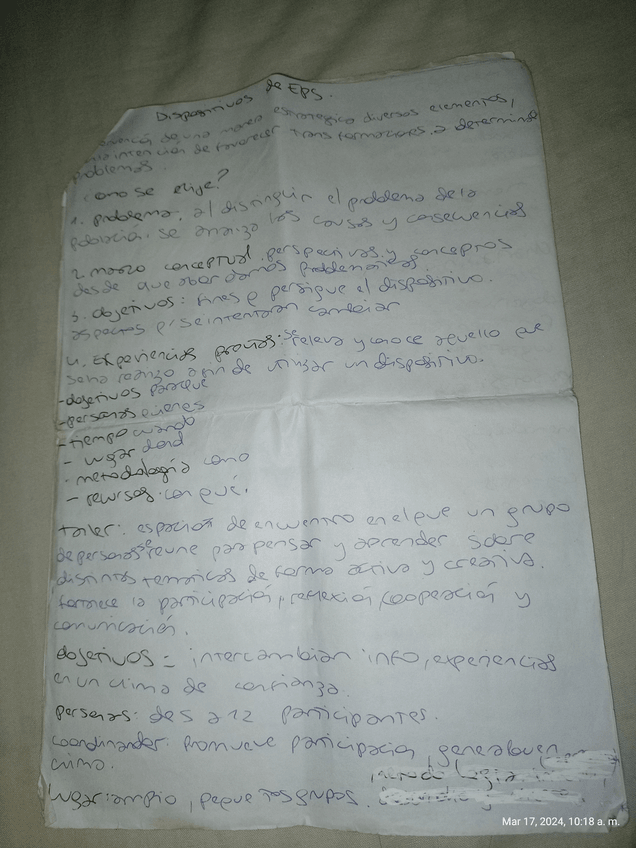 Dispositivos de EPS.
de una manera estrategica diversos elementos,
intencion de favorecer transformaciones a determinado
problemas.
como se elige?
1. problema: al distinguir el problema de la
población. se analiza las causas y consecuencias
2. marco conceptual. perspectivas y conceptos
desde que abordamos problematicas
3. objetivos: fines q persigue el dispositivo.
aspectos q se intentaran cambiar
4. Experiencias previas: se releva y conoce aquello que
se ha realizo a fin de utilizar un dispositivo.
-objetivos paraque
-personas quienes
-tiempo cuando
- lugar dond
- metodología como
- recursos. con qué.
taller: espacios de encuentro en el que un grupo
de personas se reune para pensar y aprender sobre
distintas tematicas de forma activa y creativa.
fortalece la participación, reflexión, cooperación y
comunicación.
objetivos = intercambiar info, experiencias
en un clima de confianza.
personas: de 5 a 12 participantes.
coordinander: Promueve participacion, genera buen
clima.
lugar: amplio, peque
Mar 17, 2024, 10:18 a. m.